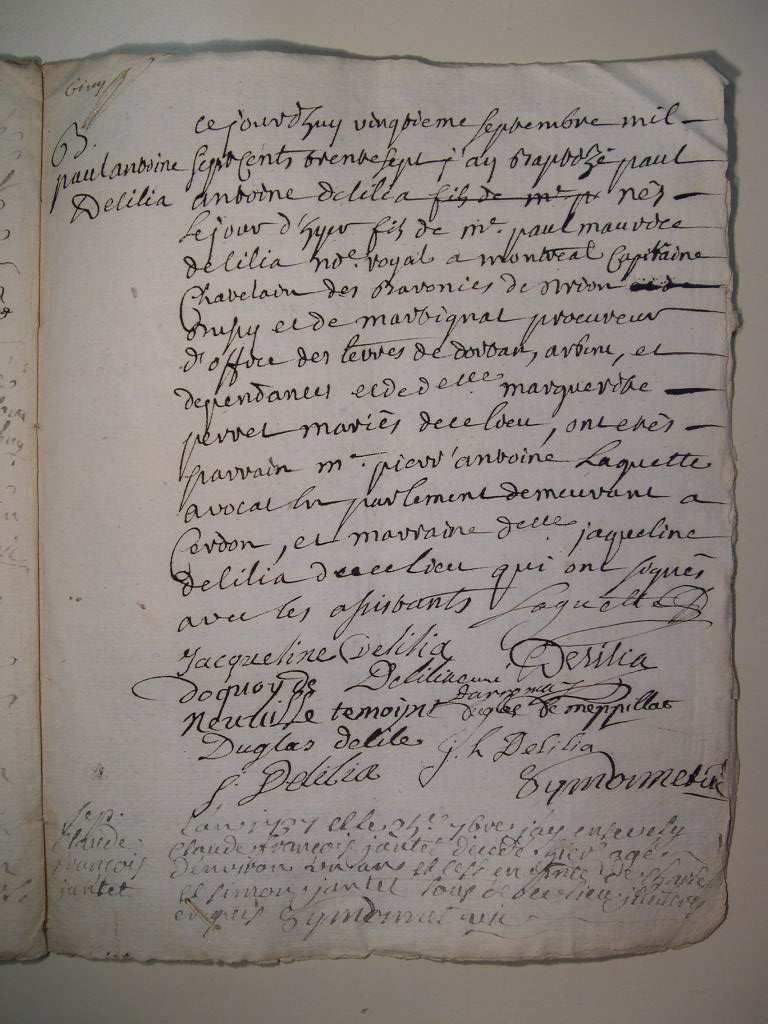 B.
paul antoine
Delilia
ce jourd'huy vingtieme septembre mil
sept cents trente sept j'ay Baptizé paul
antoine delilia fils de mr. p nés
le jour d'hyer fils de mr. paul maurice
delilia nore. royal a montreal Capitaine
Chatelain des Baronies de
et de martignat procureur
d'office des terres de dortan, arbent, et
dependances et de delle marguerite
perret mariés de ce lieu, ont etés
parrain mr. pierr' antoine Laguette
avocat en parlement demeurant a
Cerdon, et marraine delle jaqueline
delilia de ce lieu qui ont signés
avec les assistants Laguette
Jacqueline Delilia Delilia
doquoy de Delilia curé
Neuville temoint duglas de meppillat
Duglas delile J. h Delilia
J. Delilia Eymonnet
Sep.
Claude
françois
jantet
L'an 1737 et le 7bre j'ay ensevely
Claude françois jantet decede hier agé
d'environ ans et
et simon jantet tous de ce lieu
Eymonnet